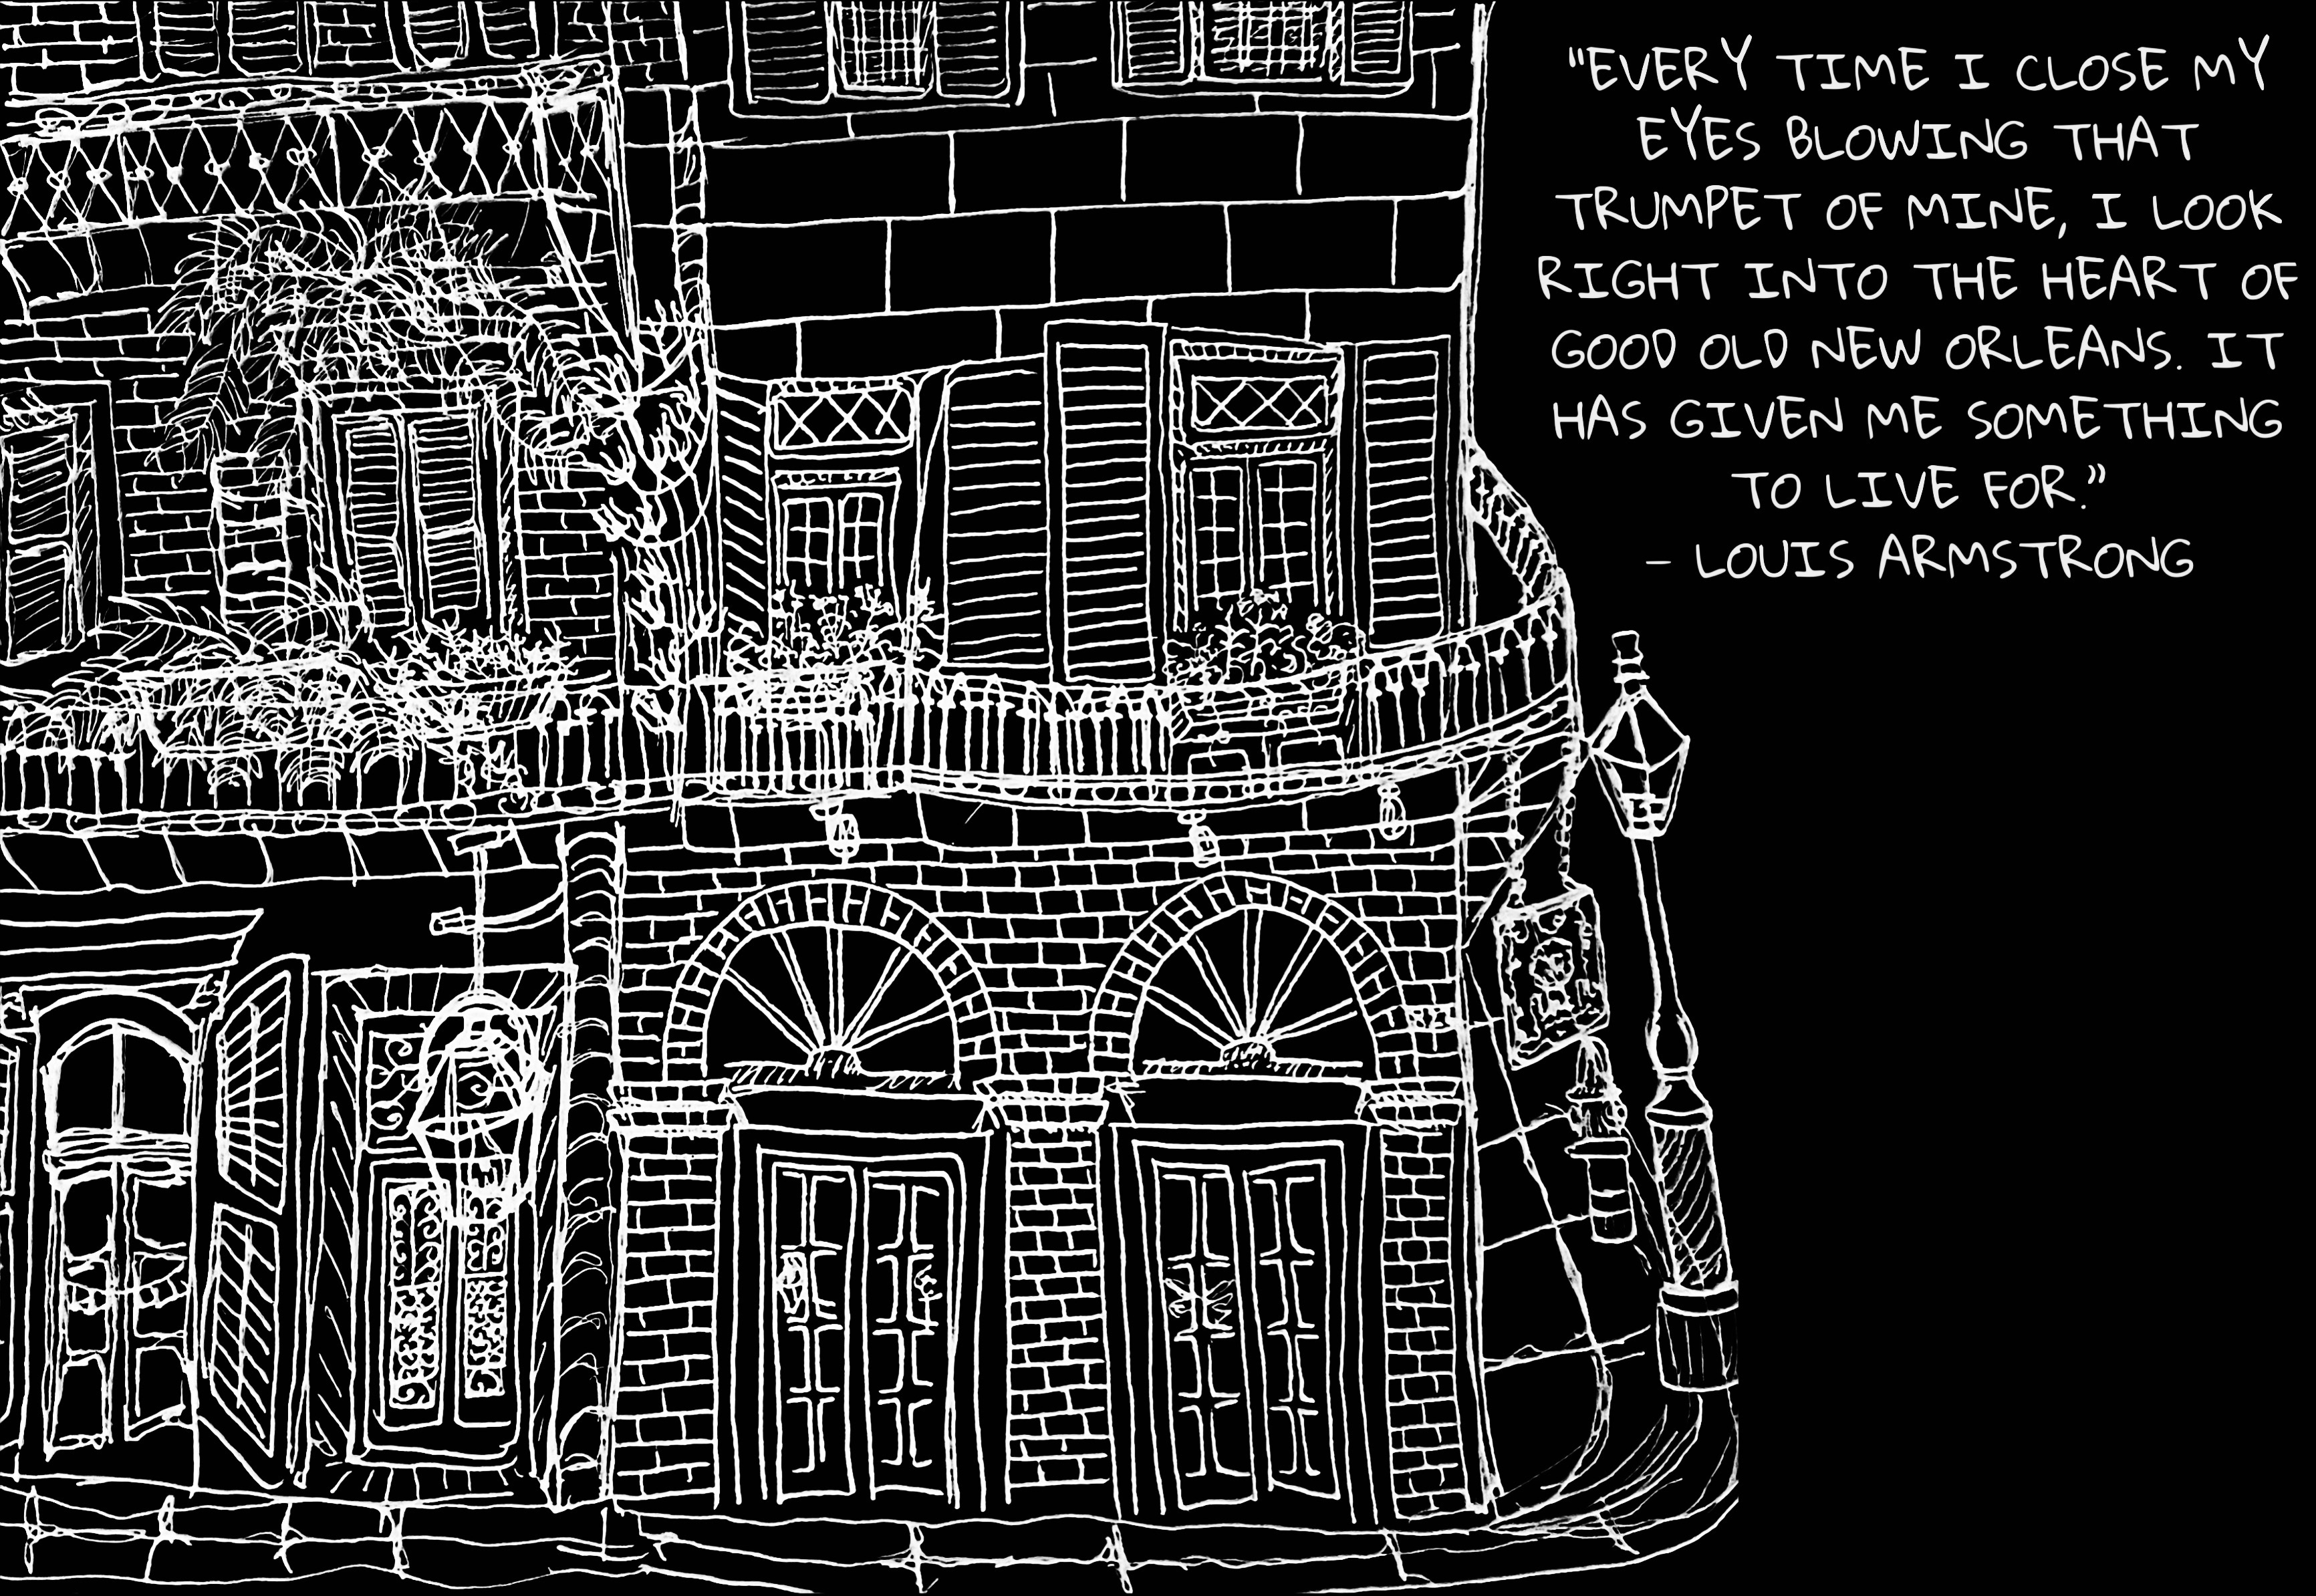 "EVERY TIME I CLOSE MY
EYES BLOWING THAT
TRUMPET OF MINE, I LOOK
RIGHT INTO THE HEART OF
GOOD OLD NEW ORLEANS. IT
HAS GIVEN ME SOMETHING
TO LIVE FOR."
- LOUIS ARMSTRONG